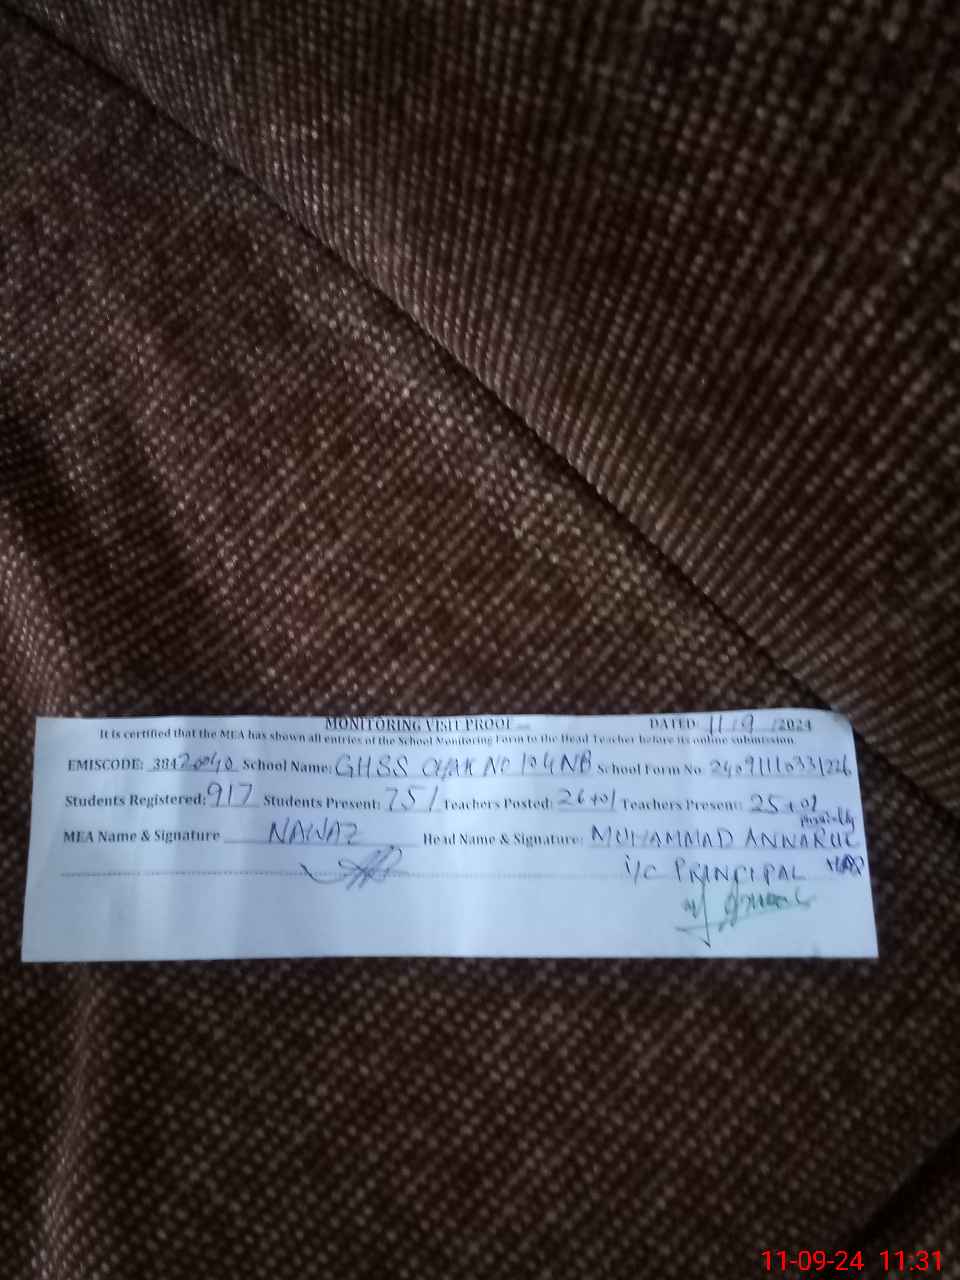 MONITORING VISIT PROOF DATED: 11/9/2024
It is certified that the MEA has shown all entries of the School Monitoring Form to the Head Teacher before its online submission.
EMISCODE: 38420040 School Name: GHSS CHAK NO 104NB School Form No: 24091110331226
Students Registered: 917 Students Present: 751 Teachers Posted: 26+01 Teachers Present: 25+01
MEA Name & Signature NAWAZ Head Name & Signature: MUHAMMAD ANWARUL
I/C PRINCIPAL HAQ
11-09-24 11:31